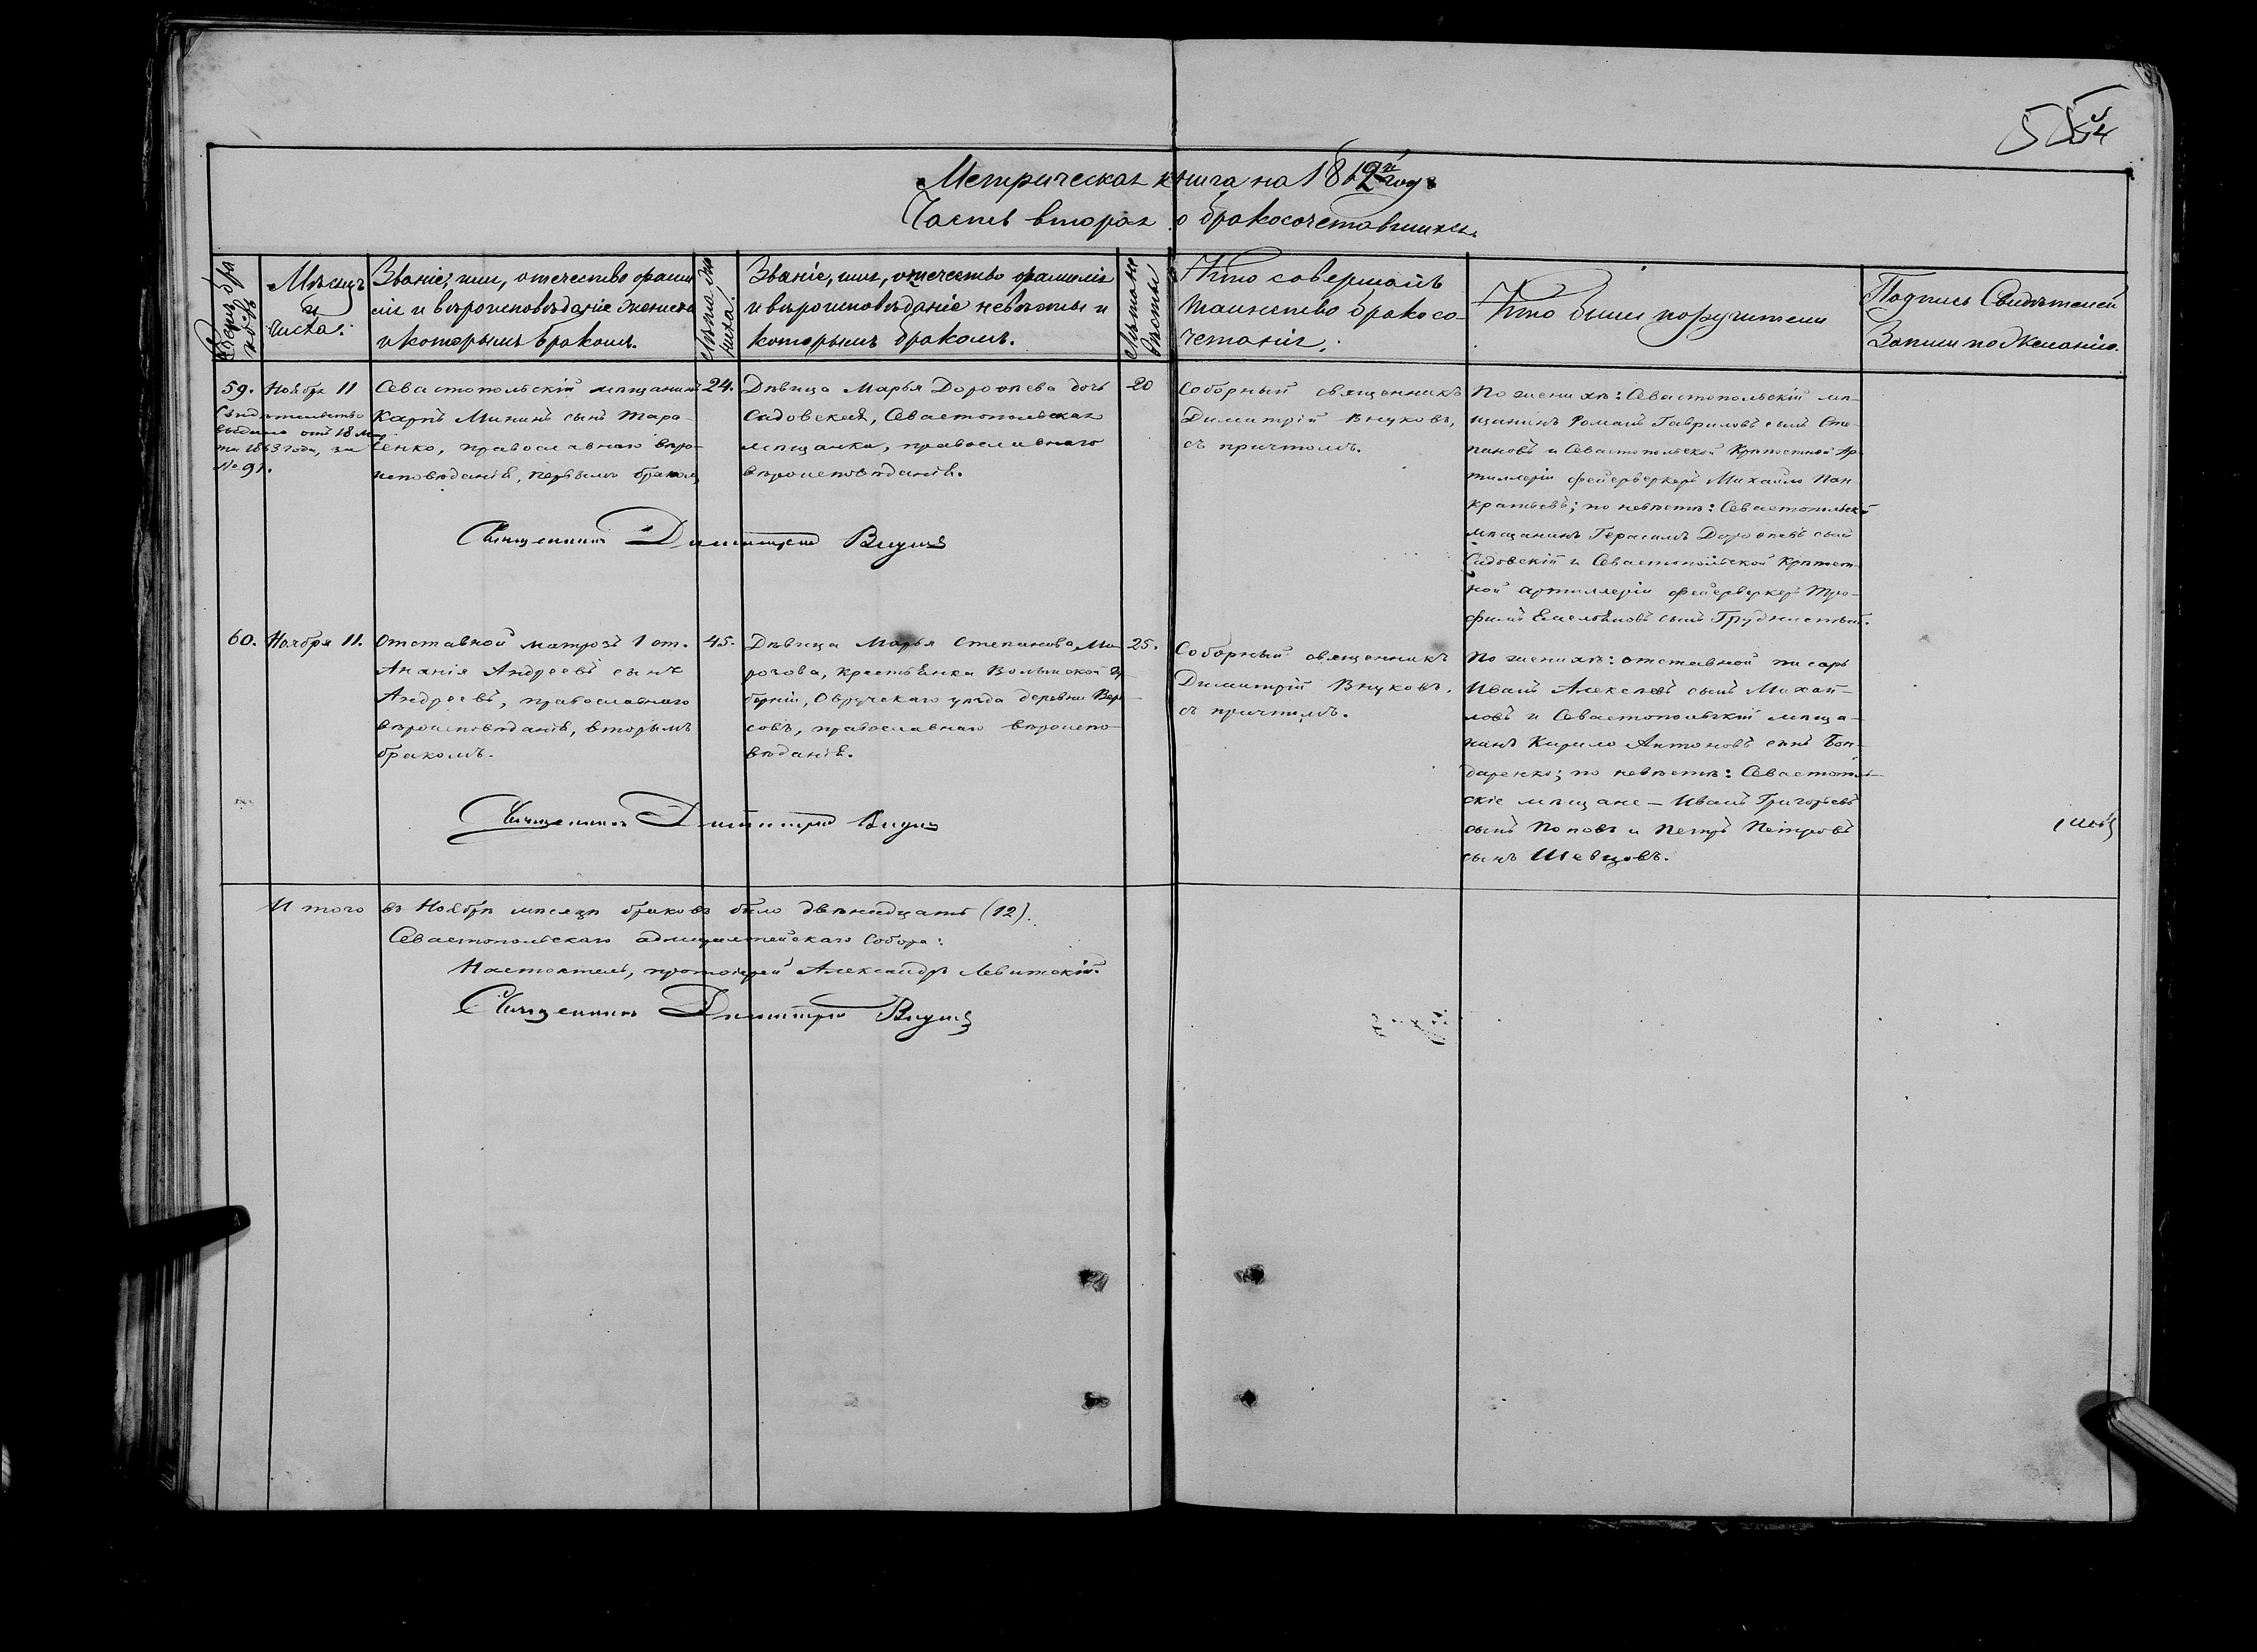 Метрическая книга на 1862й годъ
Часть вторая о бракосочетавшихся.
Мѣсяцъ
и
числа.
Званіе, имя, отечество фами
лія и вѣроисповѣданіе Жениха
и которымъ бракомъ.
Лѣта же
ниха.
Званіе, имя, отечество фамилія
и вѣроисповѣданіе невѣсты и
которымъ бракомъ.
Лѣта не
вѣсты
Кто совершалъ
таинство бракосо-
четанія.
Кто были поручители
Подпись Свидѣтелей
Записи по Желанію.
59.
Свидѣтельство
выдано отъ 18 Мар
та 1863 года, за
№ 91.
Ноября 11
Севастопольскій мѣщанинъ
Карпъ Мининъ сынъ Тара-
сенко, православнаго вѣро-
исповѣданія, первымъ бракомъ
24.
Дѣвица Марья Дороѳеева дочь
Садовская, Севастопольская
мѣщанка, православнаго
вѣроисповѣданія.
20
Соборный священникъ
Димитрій Внуковъ,
съ причтомъ.
По женихѣ: Севастопольскій мѣ-
щанинъ Романъ Гавриловъ сынъ Сте-
пановъ и Севастопольской Крѣпостной Ар
тиллеріи фейерверкеръ Михаилъ Пан
кратьевъ; по невѣстѣ: Севастопольскій
мѣщанинъ Герасимъ Дороѳеевъ сынъ
Садовскій и Севастопольской Крѣпост
ной артиллеріи фейерверкеръ Тро-
фимъ Емельяновъ сынъ
Священникъ Димитрій Внуковъ
60.
Ноября 11.
Отставной матрозъ 1 ст.
Ананія Андреевъ сынъ
Андреевъ, православнаго
вѣроисповѣданія, вторымъ
бракомъ.
45.
Дѣвица Марья Степанова
крестьянка Волынской Гу
берніи, Овручскаго уѣзда деревни
православнаго вѣроиспо-
вѣданія.
25.
Соборный священникъ
Димитрій Внуковъ.
съ причтомъ.
По женихѣ: отставной писарь
Иванъ Алексѣевъ сынъ Михай-
ловъ и Севастопольскій мѣща-
нинъ Кирило Антоновъ сынъ Бон-
даренко; по невѣстѣ: Севастополь-
скіе мѣщане — Иванъ Григорьевъ
сынъ Поповъ и Петръ Петровъ
сынъ Шевцовъ.
Священникъ Димитрій Внуковъ
Итого въ Ноябрѣ мѣсяцѣ браковъ было двѣнадцать (12).
Севастопольскаго адмиралтейскаго Собора:
Настоятель, протоіерей Александръ Левитскій
Священникъ Димитрій Внуковъ